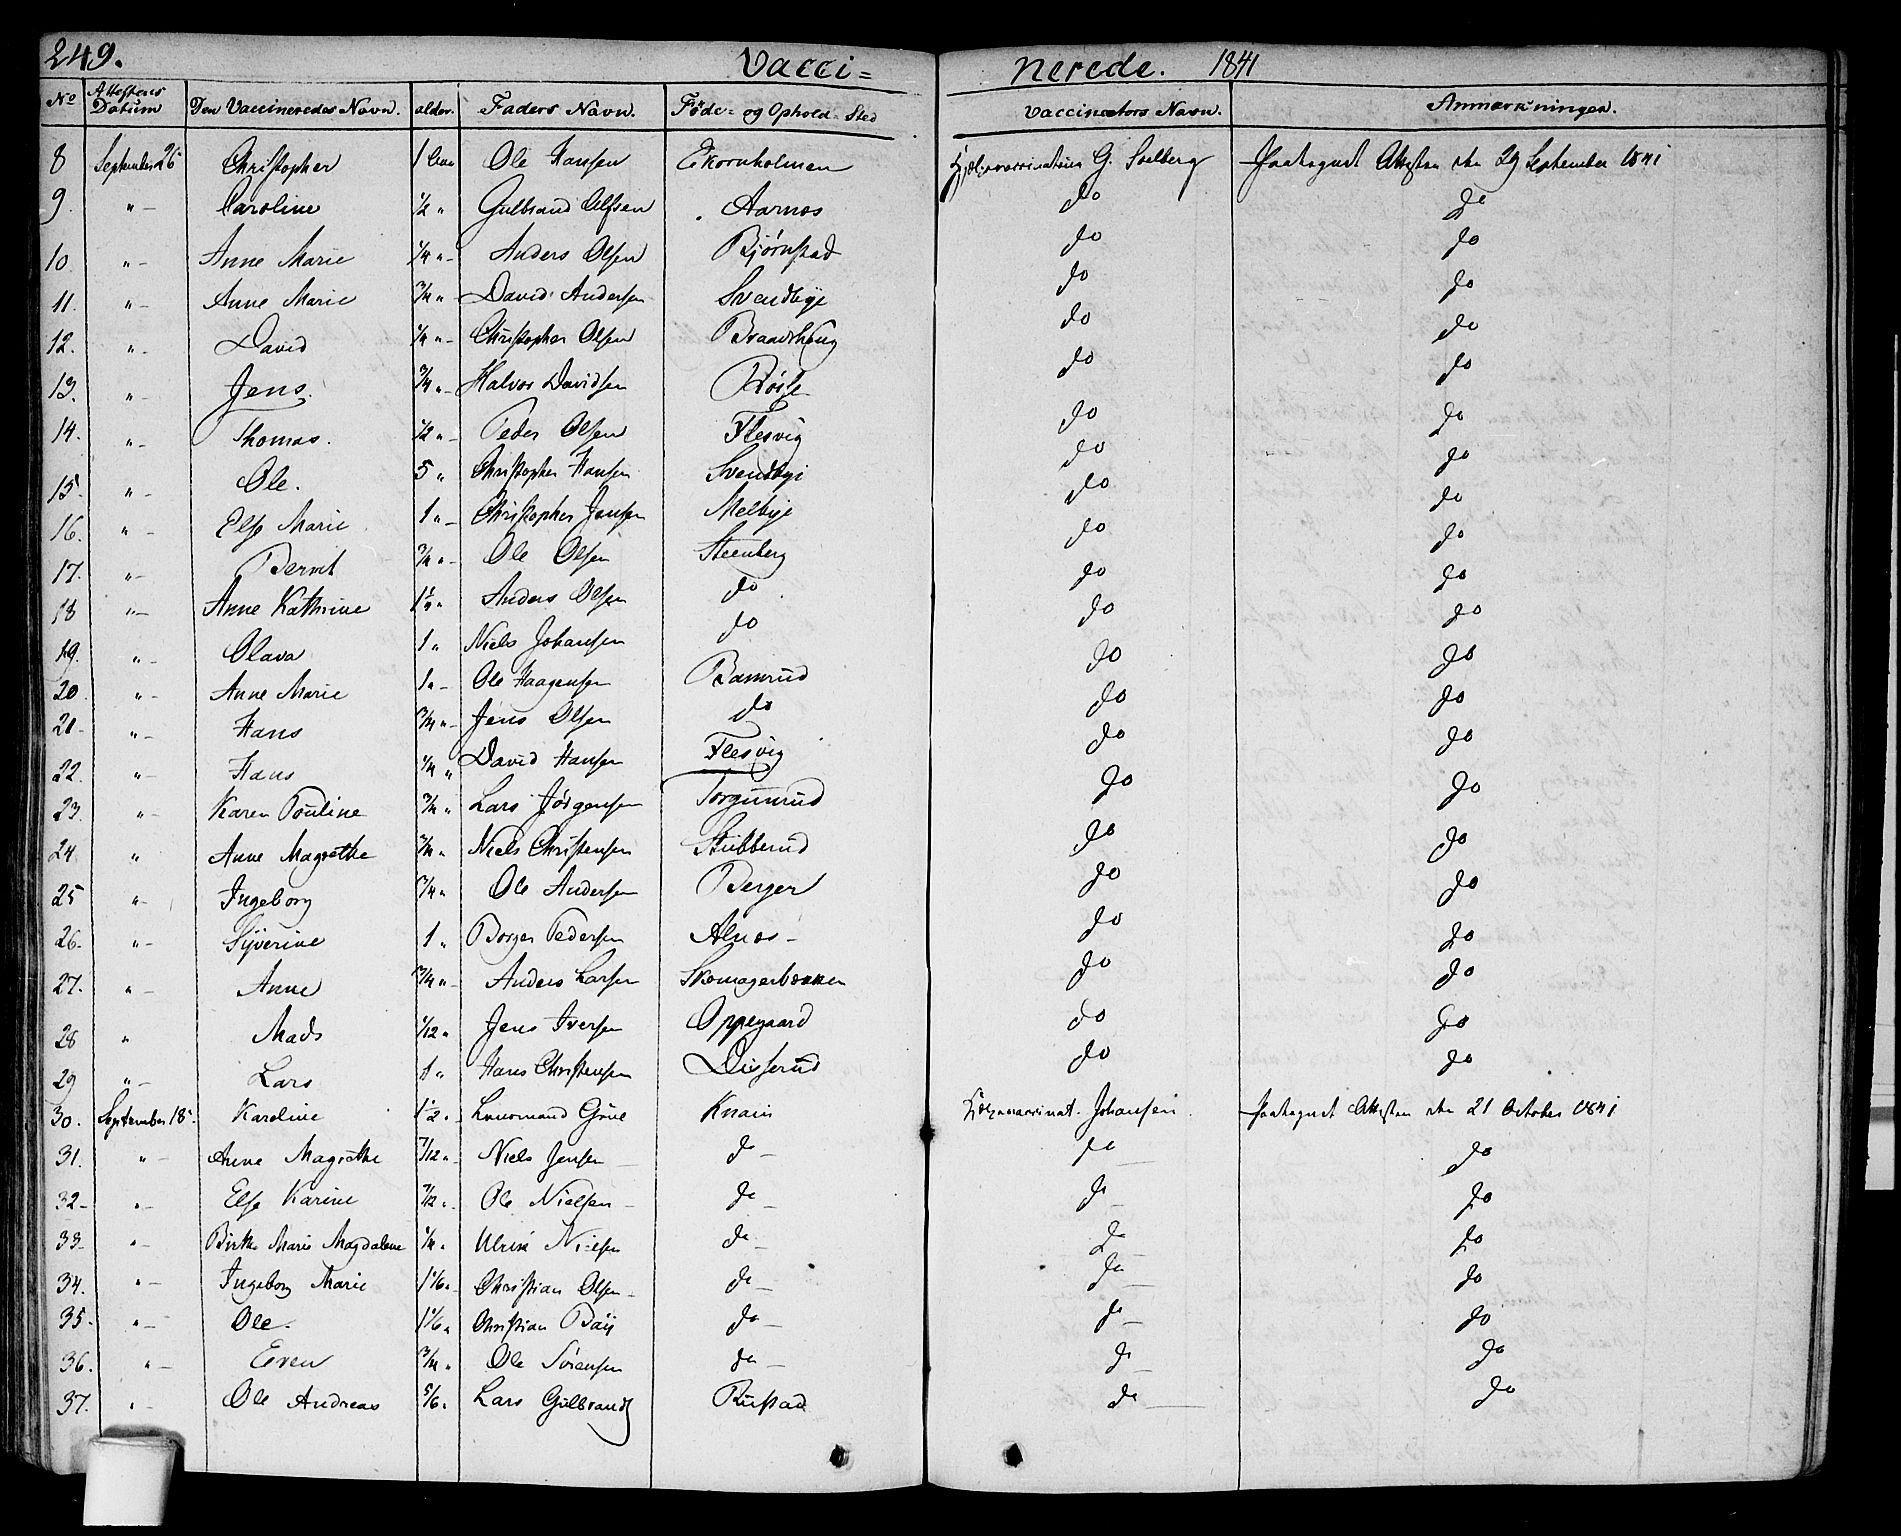 249. Vacci= nerede. 1841
No Attestens Datum Den Vaccineredes Navn. alder. Faders Navn. Føde= og Ophold= Sted Vaccinators Navn. Anmærkninger.
8 September 26 Christopher 1 Ole Hansen Ekornholmen G. Soelberg Attesten den 29 September 1841
9. " — Caroline 1/2 " Gulbrand Olfsen Aarnæs do do
10. " — Anne Marie 1/4 " — Anders Olsen Bjørnstad do do
11. " — Anne Marie 3/4 " David Andersen Svendbye do do
12. " — David 1/4 " — Christopher Olsen do do
13. " — Jens. 3/4 " — Halvor Davidsen do do
14. " — Thomas. 1/2 " — Peder Olsen Flesvig do do
15. " — Ole. 5 " Christopher Hansen Svendbye do do
16. " — Else Marie 1 " — Christopher Jensen Melbye do do
17. " — Berrit 3/4 " — Ole Olsen Steenberg do do
18 " — Anne Kathrine 1 1/2 " Anders Olsen do do do
19. " — Olava 1 " Niels Johansen do do do
20 " — Anne Marie 1 " — Ole Haagensen Bamrud do do
21 — " — Hans 3/4 " — Jens Olsen do do do
22. " — Hans 1/4 " David Hansen Flesvig do do
23. " — Karen Pouline 3/4 " Lars Jørgensen Torgunrud do do
24. " Anne Magrethe 3/4 " Niels Christensen Stubberud do do
25 " — Ingeborg 3/4 " Ole Andersen Berger do do
26. " — Syverine 1 " Borger Pedersen Alnæs — do do
27. " — Anne 3/4 " — Anders Larsen Skomagerbakken do do
28 " Mads 1/12 " Jens Iversen Oppegaard do do
29 " — Lars 1 " Hans Christensen Disserud do do
30. September 18. Karoline 1 1/2 " Lensmand Grue Knain Johansen. Attesten den 21 October 1841
31. " — Anne Magrethe 7/12 " — Niels Jensen — do — do — do
32 — " — Else Karine 7/12 " — Ole Nielsen — do — do — do
33 " — Birthe Marie Magdalene 1/4 " Ulrik Nielsen do — do — do
34. " — Ingeborg Marie 1 1/6 " Christian Olsen — do — do — do
35. " — Ole. 1 1/6 " Christian Bay do — do — do
36. " — Even 3/4 " Ole Sørensen do — do — do
37. " — Ole Andreas 5/6 " Lars Gulbrands Rustad do — do